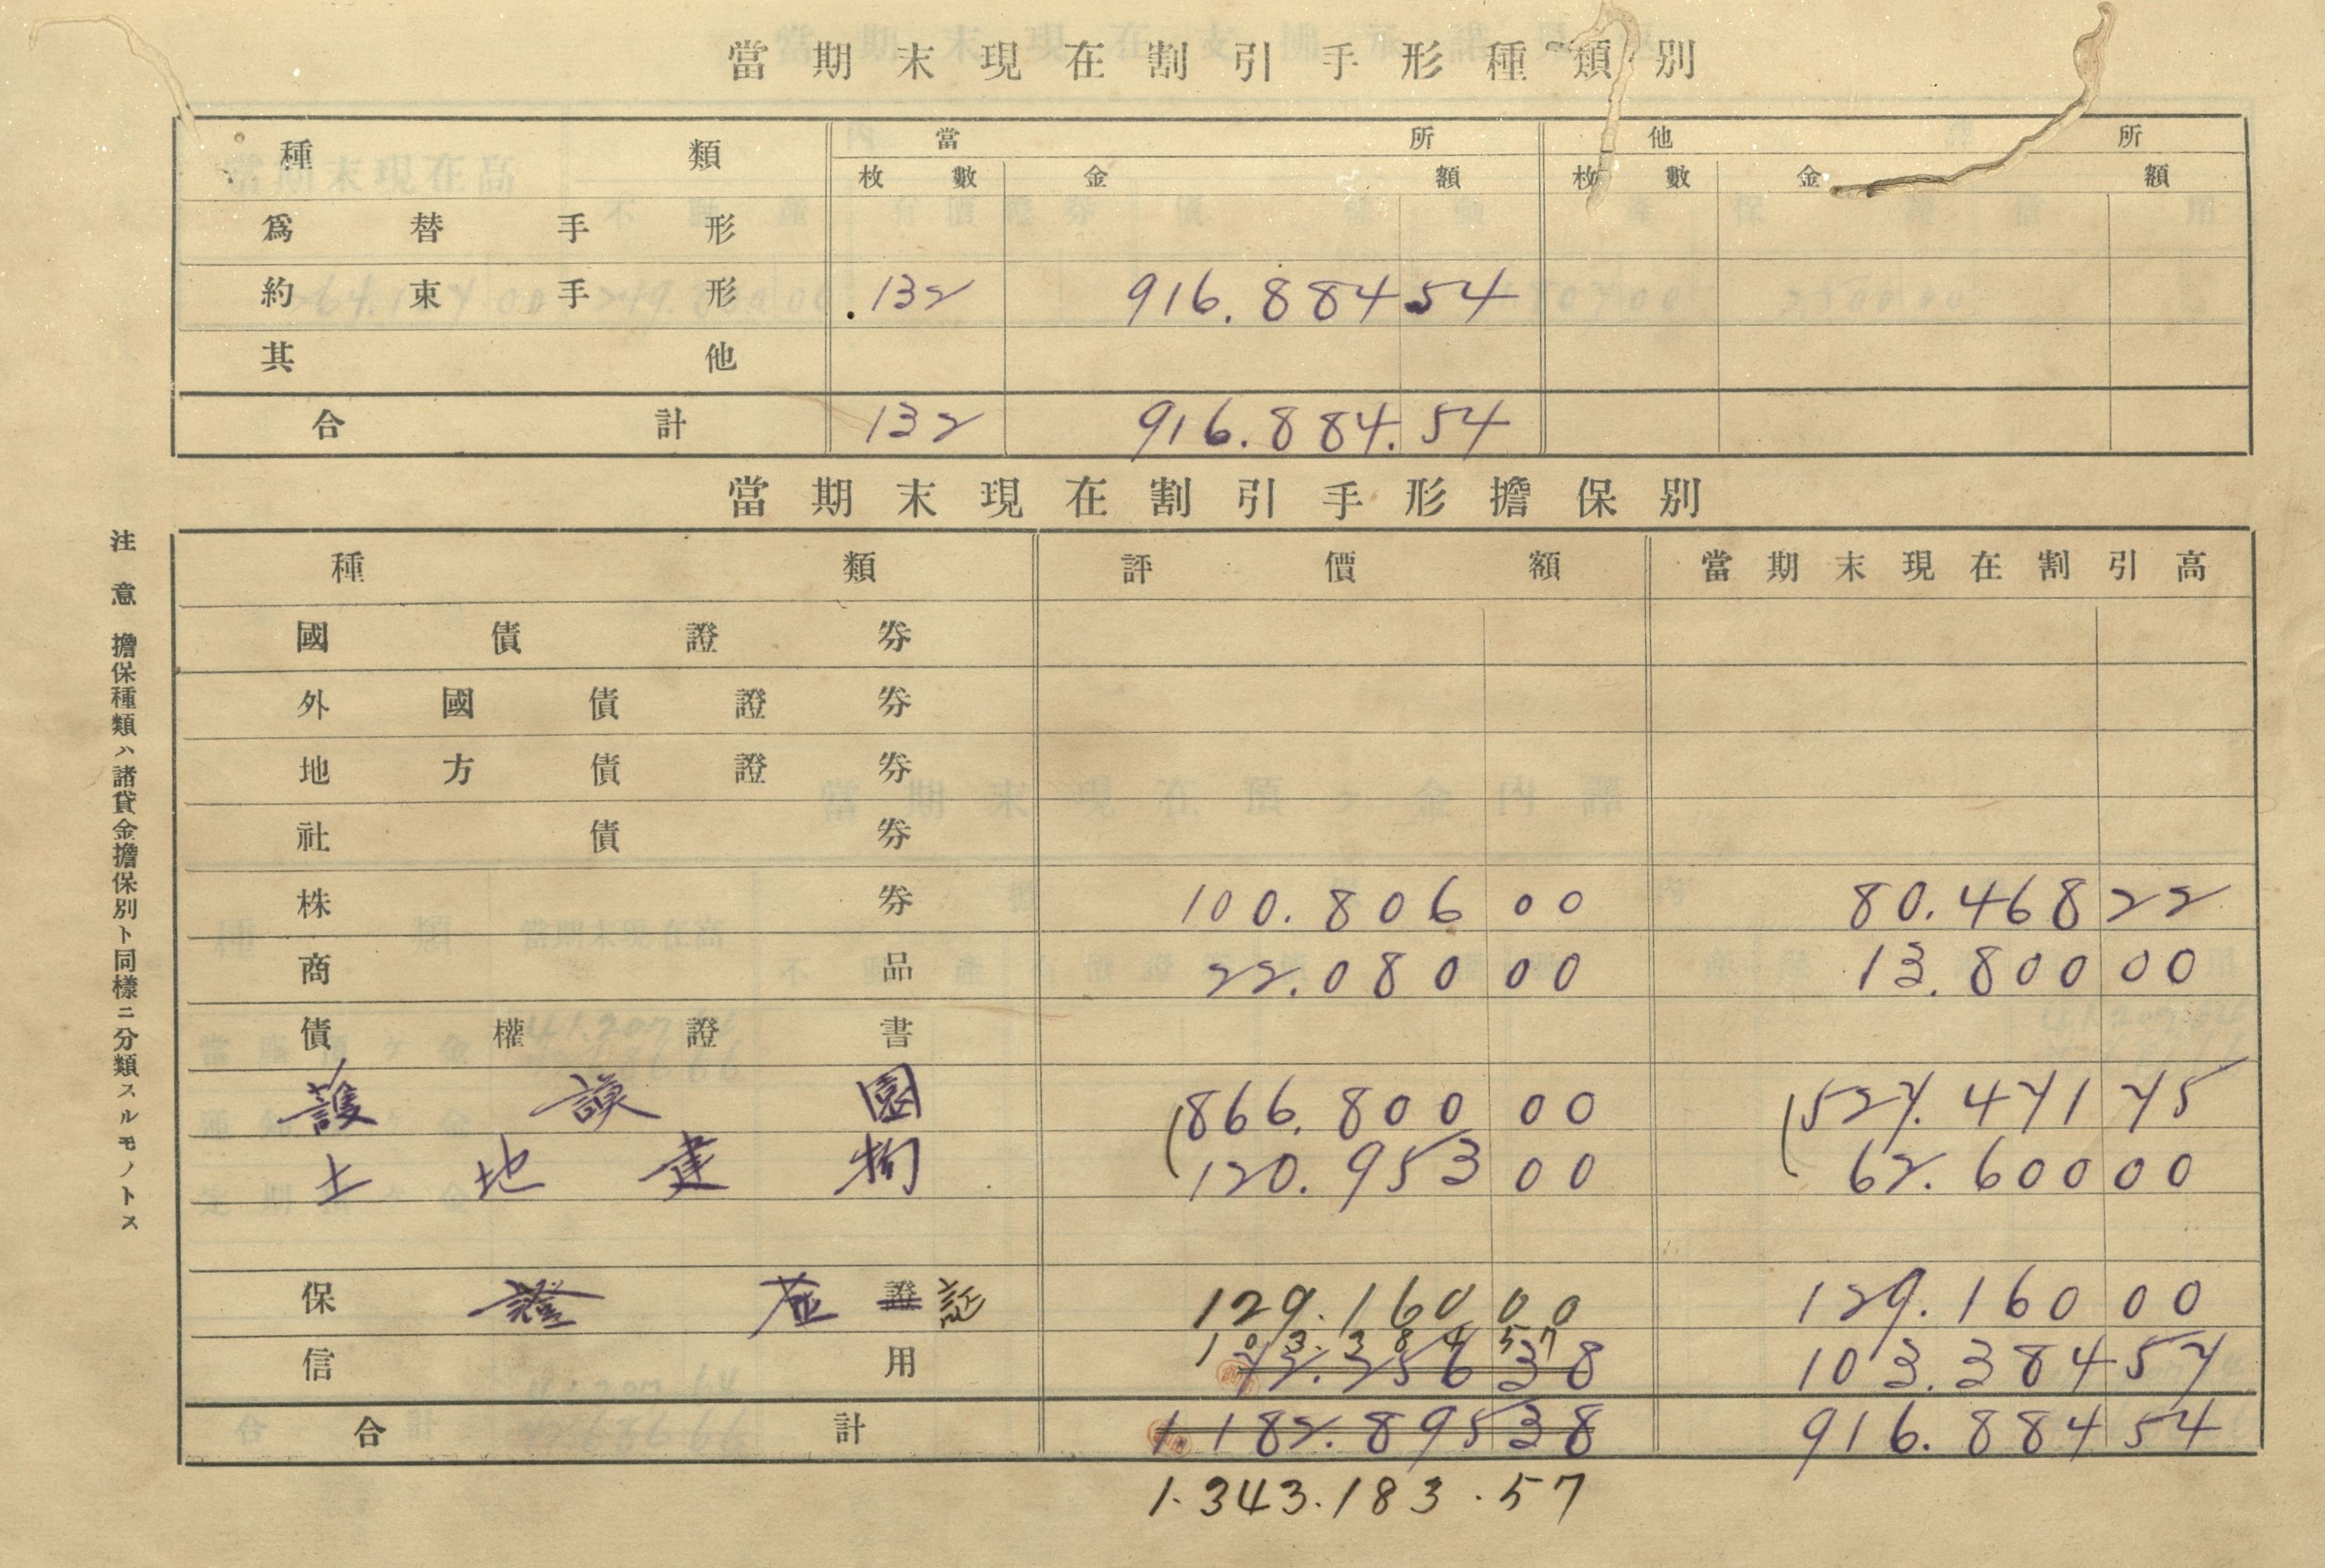 當期末現在割引手形種類別
種類 當所 他所
枚數 金額 枚數 金額
爲替手形
約束手形 132 916.884 54
其他
合計 132 916.884.54
當期末現在割引手形擔保別
種類 評價額 當期末現在割引高
國債證券
外國債證券
地方債證券
社債券
株券 100.806 00 80.468 22
商品 22.080 00 13.800 00
債權證書
護謨園 866.800 00 527.471 75
土地建物 120.953 00 62.600 00
保 證 証 129.160 00 129.160 00
103.384 57
信用 72.256 38 103.384 57
合計 1.182.895 38 916.884 54
1.343.183.57
注意 擔保種類ハ諸貸金擔保別ト同樣ニ分類スルモノトス